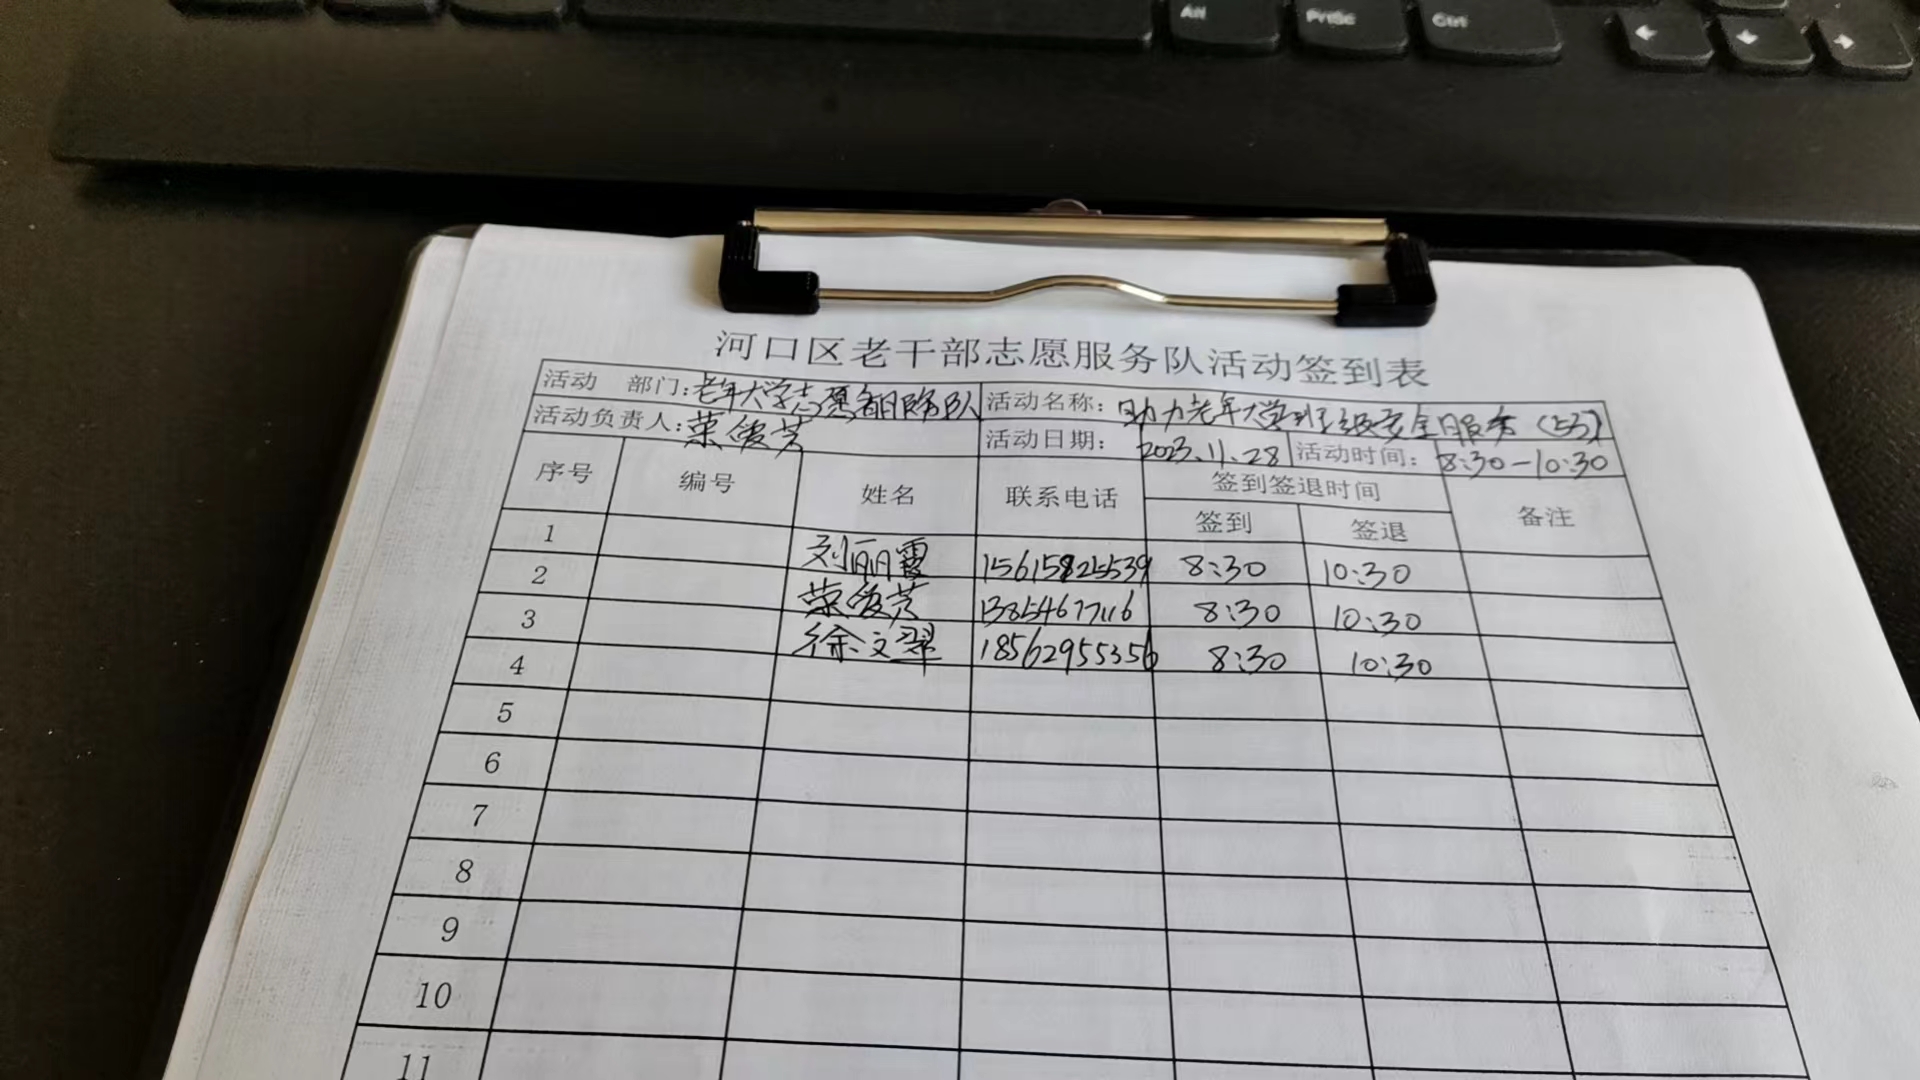 Alt PrtSc Ctrl
河口区老干部志愿服务队活动签到表
活动 部门:老年大学志愿服务队 活动名称:助力老年大学班级安全服务(53)
活动负责人:荣俊芳 活动日期: 2023.11.28 活动时间: 8:30-10:30
序号 编号 姓名 联系电话 签到签退时间 备注
签到 签退
1 刘丽霞 15615825539 8:30 10:30
2 荣俊芳 13854677116 8:30 10:30
3 徐文翠 18562955356 8:30 10:30
4
5
6
7
8
9
10
11